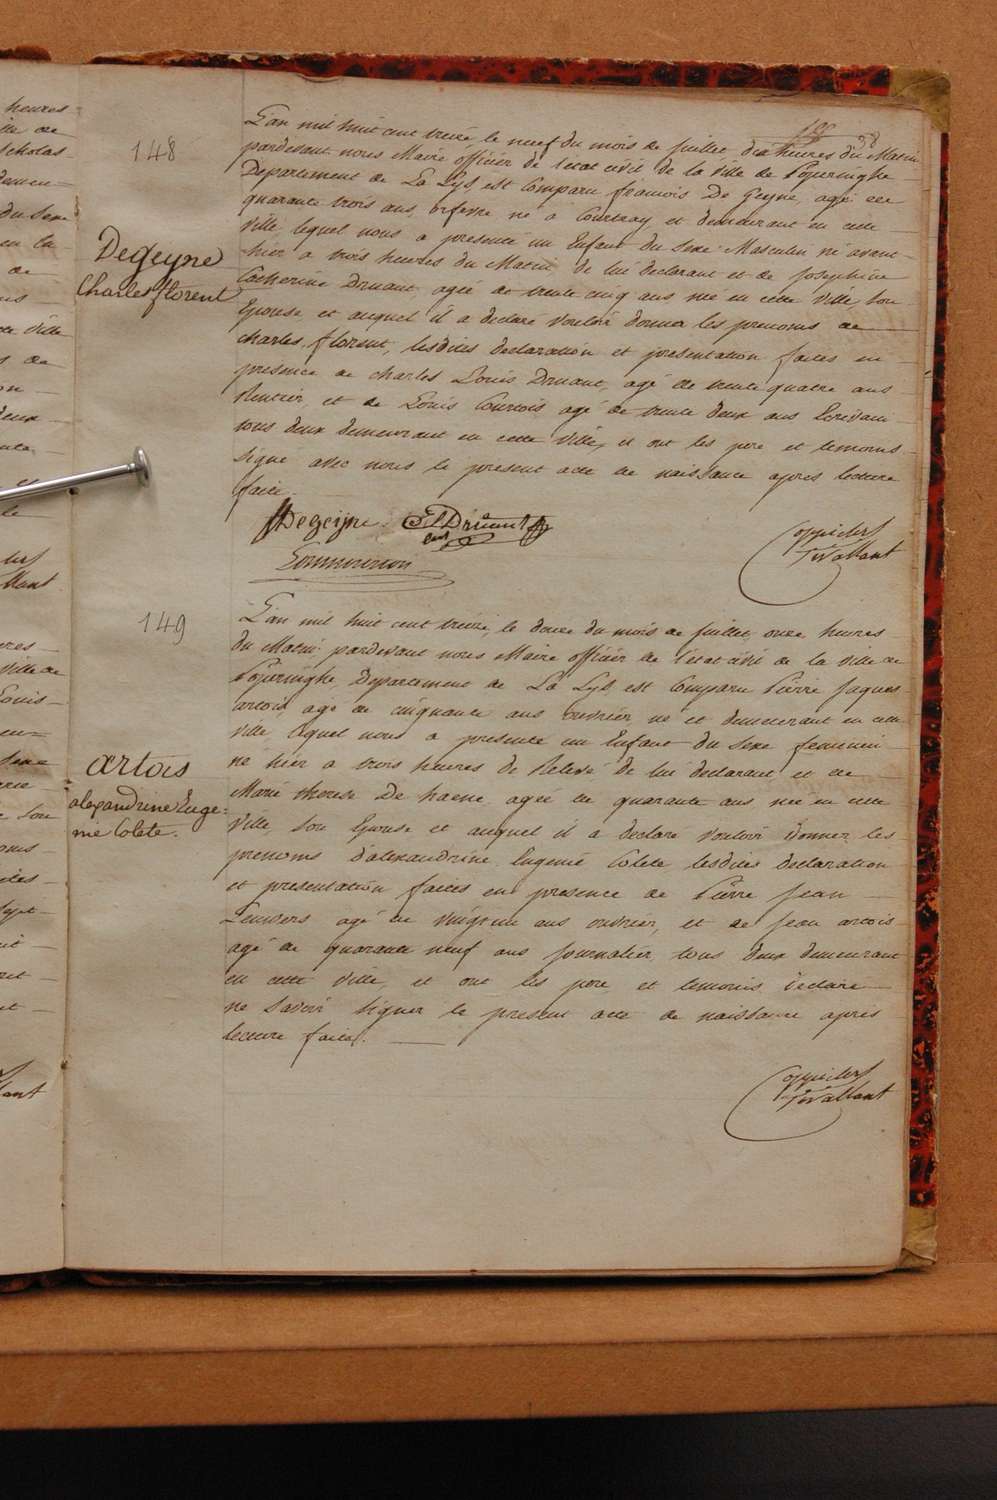 148
Degeijne
Charles florent
L'an mil huit cent treize, le neuf du mois de juillet, dix heures du Matin
pardevant nous Maire officier de l'état civil de la ville de Poperinghe
Departement de La Lys, est Comparu françois De Geyne, agé de
quarante trois ans, orfevre né a Courtray et demeurant en cette
ville, lequel nous a presenté un Enfant du sexe Masculin né avant
hier a trois heures du Matin de lui declarant et de Josephine
Catherine Druant, agée de trente cinq ans née en cette ville, son
Epouse, et auquel il a declaré vouloir donner les prenoms de
charles, florent, lesdites declaration et presentation faites en
presence de charles Louis Druant, agé de trente quatre ans
Rentier, et de Louis Courtois agé de trente deux ans Ecrivain
tous deux demeurant en cette ville, et ont les pere et temoins
signé avec nous le present acte de naissance après lecture
faite.
Degeijne
149
artois
alexandrine Euge=
nie Colete.
L'an mil huit cent treize, le douze du mois de juillet, onze heures
du Matin pardevant nous Maire officier de l'état civil de la ville de
Poperinghe, Departement de La Lys, est Comparu Pierre Jaques
artois, agé de cinquante ans ouvrier né et demeurant en cette
ville, lequel nous a presenté un Enfant du sexe feminin
né hier a trois heures de Relevé de lui declarant et de
Marie therese De haene agée de quarante ans née en cette
ville, son Epouse et auquel il a declaré vouloir donner les
prenoms d'alexandrine Eugenie Colete lesdites declaration
et presentation faites en presence de Pierre Jean
agé de ans ouvrier, et de Jean artois
agé de quarante neuf ans journalier, tous deux demeurant
en cette ville, et ont les pere et temoins declaré
ne savoir signer le present acte de naissance après
lecture faite.